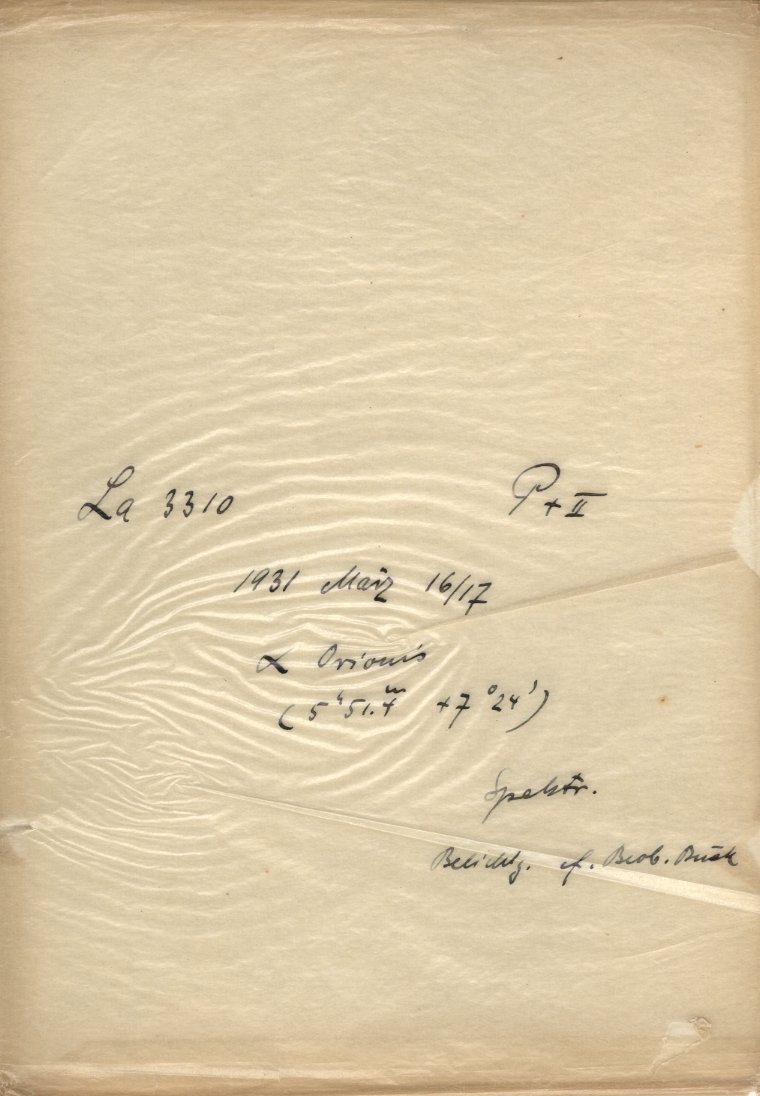 La 3310 P + II
1931 März 16/17
α Orionis
(5ʰ51.ᵐ4 +7°24')
Spektr.
Belichtg. cf. Beob. Buch